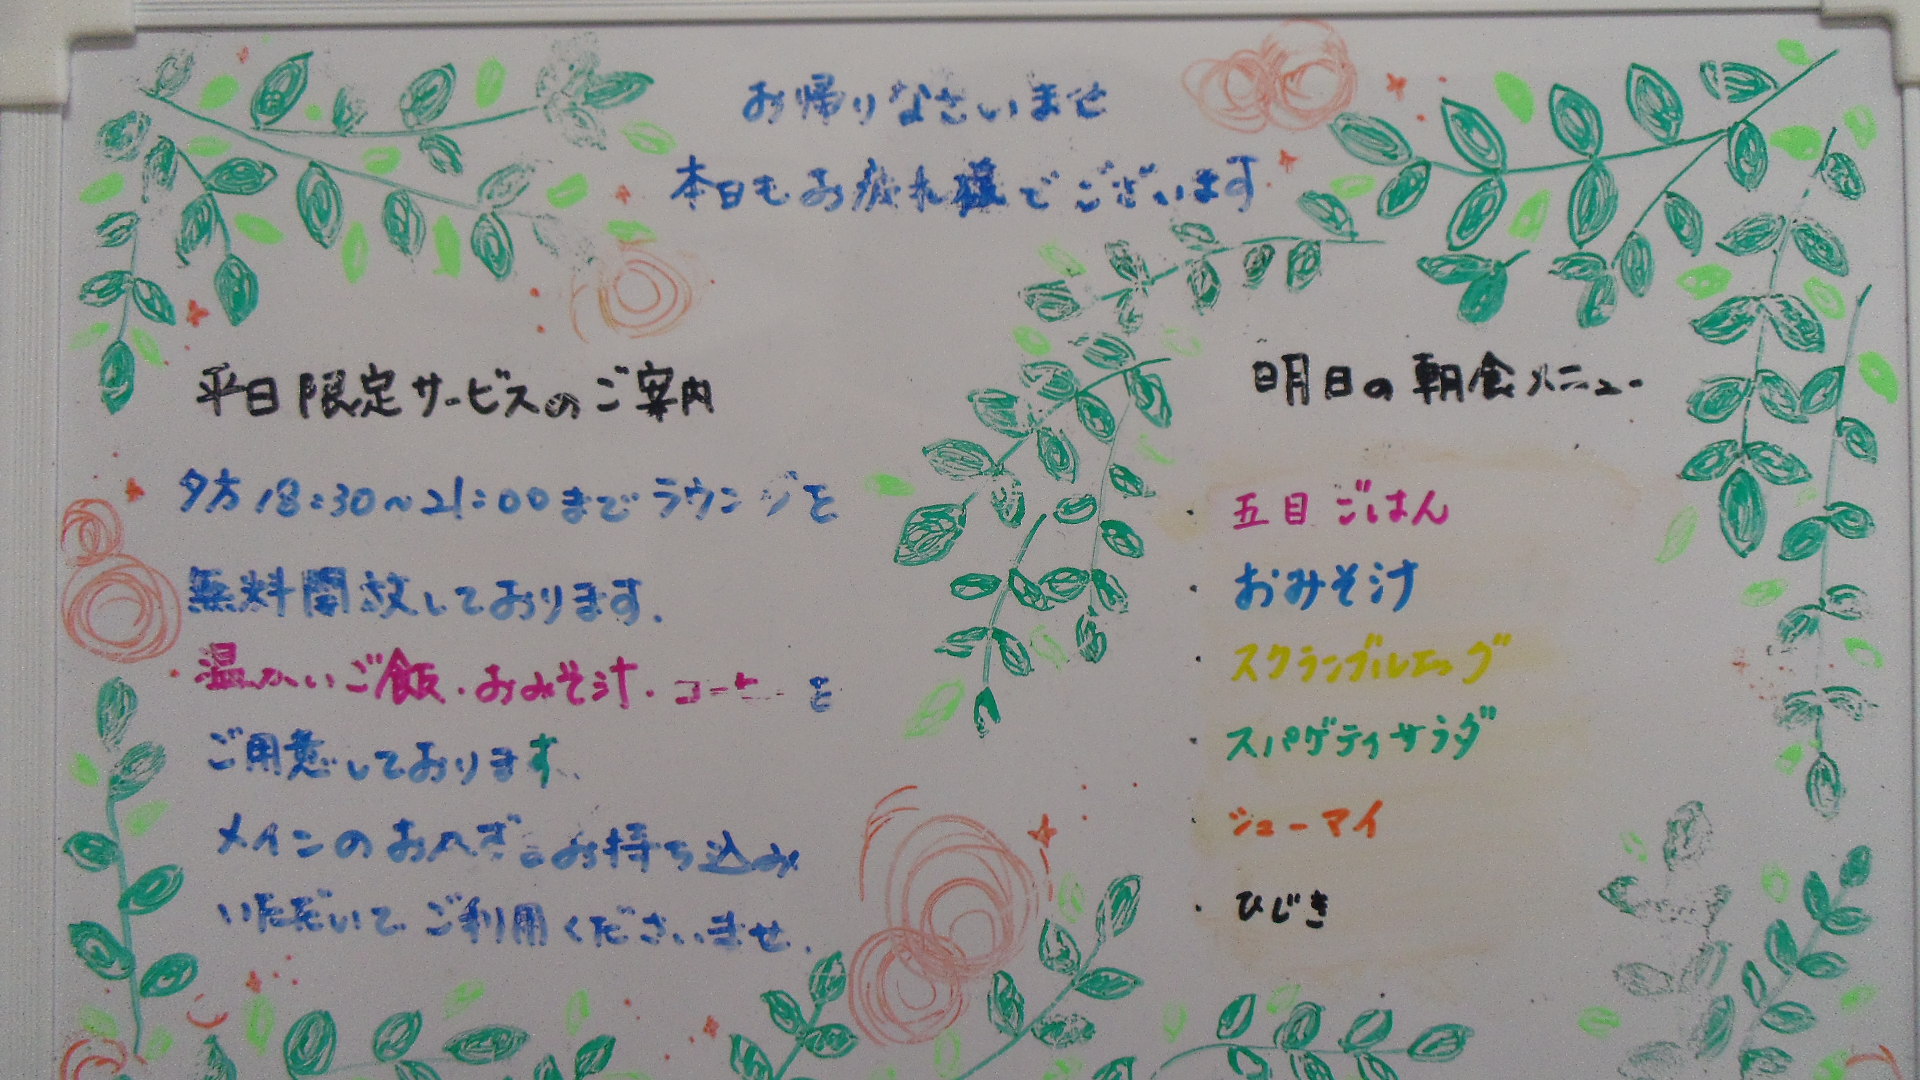 お帰りなさいませ
本日もお疲れ様でございます
平日限定サービスのご案内
夕方18:30~21:00までラウンジを
無料開放しております.
温かいご飯・おみそ汁・コーヒーを
ご用意しております.
メインのおかずをお持ち込み
いただいてご利用くださいませ.
明日の朝食メニュー
・五目ごはん
・おみそ汁
・スクランブルエッグ
・スパゲティサラダ
・シューマイ
・ひじき